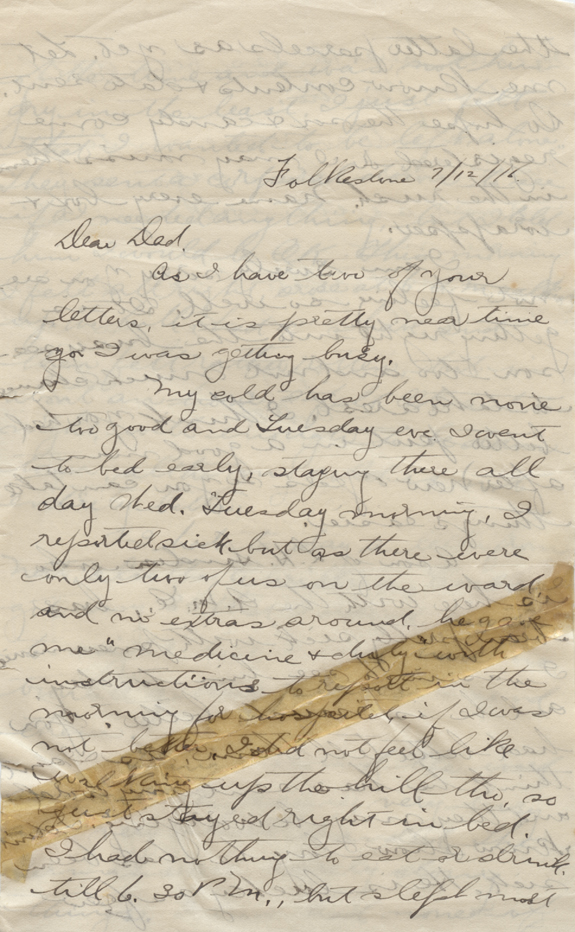 Folkestone 7/12/16.
Dear Dad.
As I have two of your
letters, it is pretty near time
for I was getting busy.
My cold has been none
too good and Tuesday eve. I went
to bed early, staying there all
day Wed. Tuesday morning, I
reported sick but as there were
only two of us on the ward
and no extras around, he gave
me "medicine & duty" with
instructions to report in the
morning for hospital if I was
not better. I did not feel like
walking up the hill tho, so
just stayed right in bed.
I had nothing to eat or drink
till 6.30 P.M., but slept most